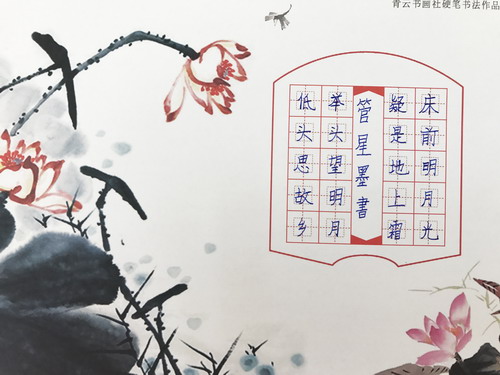 青云书画社硬笔书法作品
床前明月光
疑是地上霜
管星墨書
举头望明月
低头思故乡